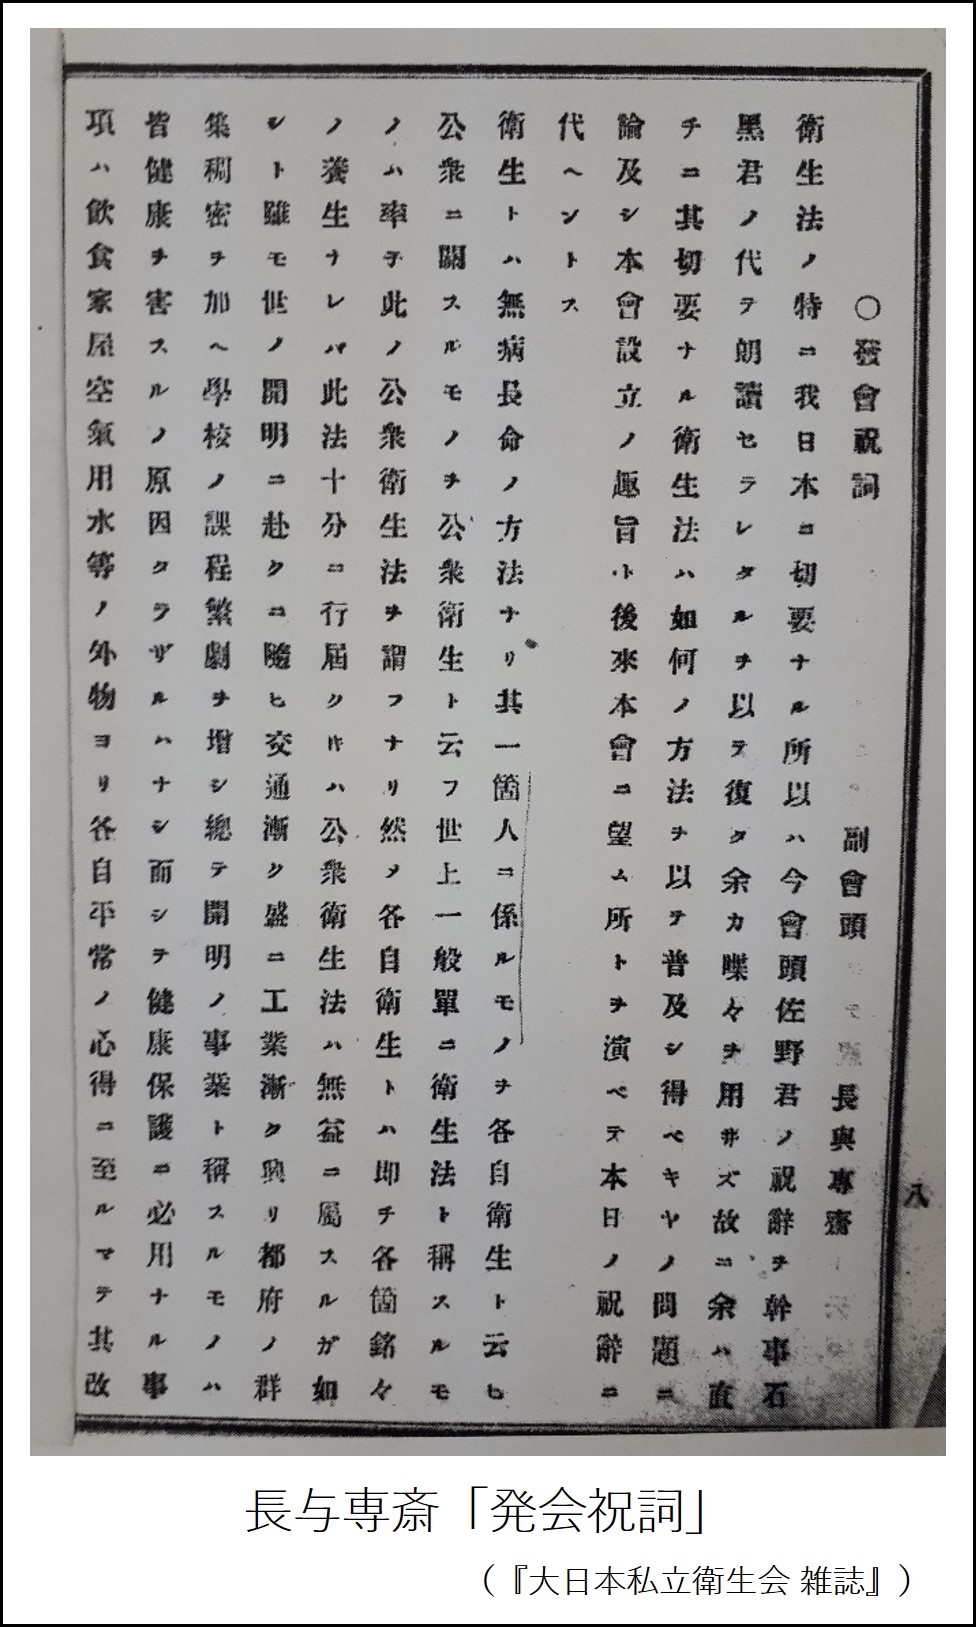 八
○發會祝詞
副會頭 長與專齋
衛生法ノ特ニ我日本ニ切要ナル所以ハ今會頭佐野君ノ祝辭ヲ幹事石
黑君ノ代テ朗讀セラレタルヲ以テ復タ余カ喋々ヲ用井ズ故ニ余ハ直
チニ其切要ナル衛生法ハ如何ノ方法ヲ以テ普及シ得ベキヤノ問題ニ
論及シ本會設立ノ趣旨ト後來本會ニ望ム所トヲ演ベテ本日ノ祝辭ニ
代ヘントス
衛生トハ無病長命ノ方法ナリ其一箇人ニ係ルモノヲ各自衛生ト云ヒ
公衆ニ關スルモノヲ公衆衛生ト云フ世上一般單ニ衛生法ト稱スルモ
ノハ率子此ノ公衆衛生法ヲ謂フナリ然メ各自衛生トハ即チ各箇銘々
ノ養生ナレバ此法十分ニ行届クキハ公衆衛生法ハ無益ニ屬スルガ如
シト雖モ世ノ開明ニ赴クニ隨ヒ交通漸ク盛ニ工業漸ク興リ都府ノ群
集稠密ヲ加ヘ學校ノ課程繁劇ヲ增シ總テ開明ノ事業ト稱スルモノハ
皆健康ヲ害スルノ原因タラザルハナシ而シテ健康保護ニ必用ナル事
項ハ飲食家屋空氣用水等ノ外物ヨリ各自平常ノ心得ニ至ルマテ其改
長与専斎「発会祝詞」
（『大日本私立衛生会 雑誌』）